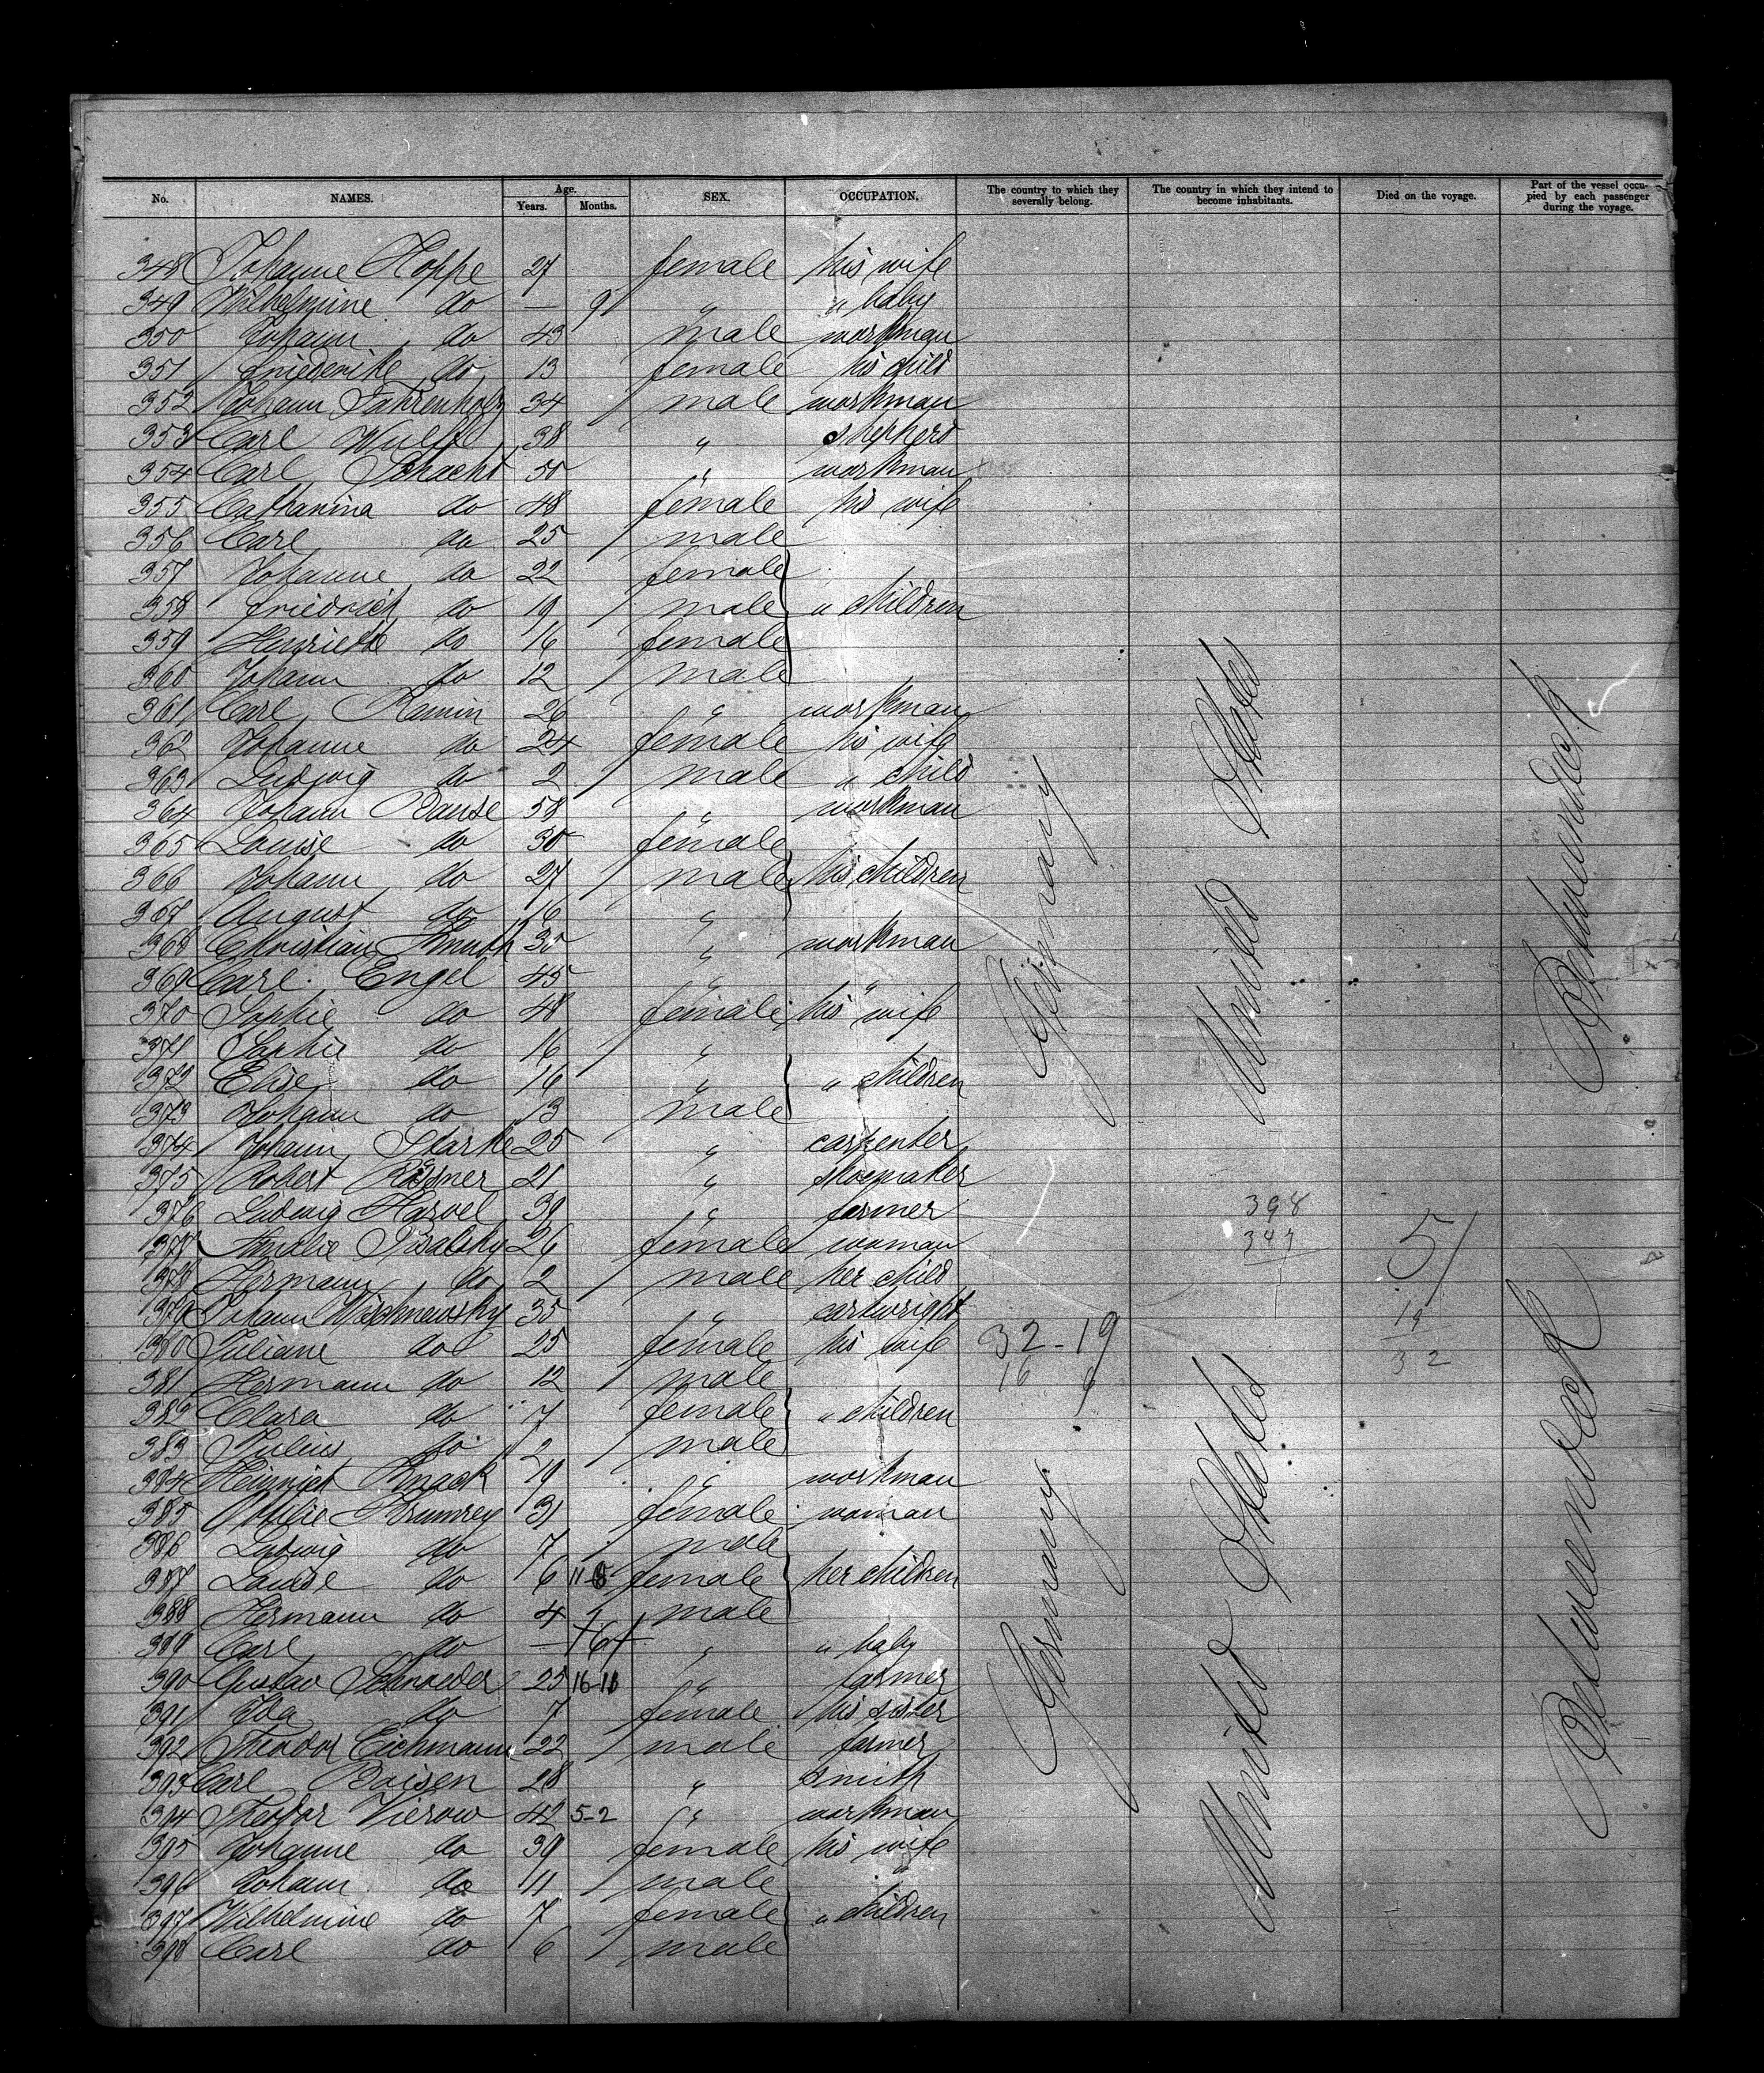 No. NAMES. Age. Years. Months. SEX. OCCUPATION. The country to which they severally belong. The country in which they intend to become inhabitants. Died on the voyage. Part of the vessel occupied by each passenger during the voyage.
348 Johanne Hoppe 27 female his wife
349 Wilhelmine do — 9 " " baby
350 Johann do 43 male workman
351 Friederike do 13 female his child
352 Johann Fahrenholz 34 male workman
353 Carl Wulff 38 " shepherd
354 Carl Schacht 50 " workman
355 Catharina do 48 female his wife
356 Carl do 25 male
357 Johanne do 22 female
358 Friedrich do 19 male " children
359 Henriette do 16 female
360 Johann do 12 male
361 Carl Ramin 26 " workman
362 Johanne do 24 female his wife
363 Ludwig do 2 male " child
364 Johann Banse 58 " workman
365 Louise do 30 female
366 Johann do 27 male his children
367 August do 16 "
368 Christian Knuth 35 " workman
369 Carl Engel 45 " "
370 Sophie do 48 female his wife
371 Sophie do 16 "
372 Elise do 16 " " children
373 Johann do 13 male
374 Johann Starke 25 " carpenter
375 Robert Rösner 21 " shoemaker
376 Ludwig Harvel 39 " farmer
377 Amalie Pisalsky 26 female woman
378 Hermann do 2 male her child
379 Johann Wischnewsky 35 " cartwright
380 Juliane do 25 female his wife
381 Hermann do 12 male
382 Clara do 7 female " children
383 Julius do 2 male
384 Heinrich Knack 19 " workman
385 Ottilie Krumrey 31 female woman
386 Ludwig do 7 male
387 Louise do 6 11-8 female her children
388 Hermann do 4 male
389 Carl do — 6 " " baby
390 Gustav Schroeder 25 16-11 " farmer
391 Ida do 7 female his sister
392 Theodor Eichmann 22 male farmer
393 Carl Boisen 28 " smith
394 Theodor Vierow 42 5-2 " workman
395 Johanne do 39 female his wife
396 Johann do 11 male
397 Wilhelmine do 7 female " children
398 Carl do 6 male
Germany
United States
Betweendeck
398
347
51
19
32
32-19
16 6
Germany
United States
Betweendeck